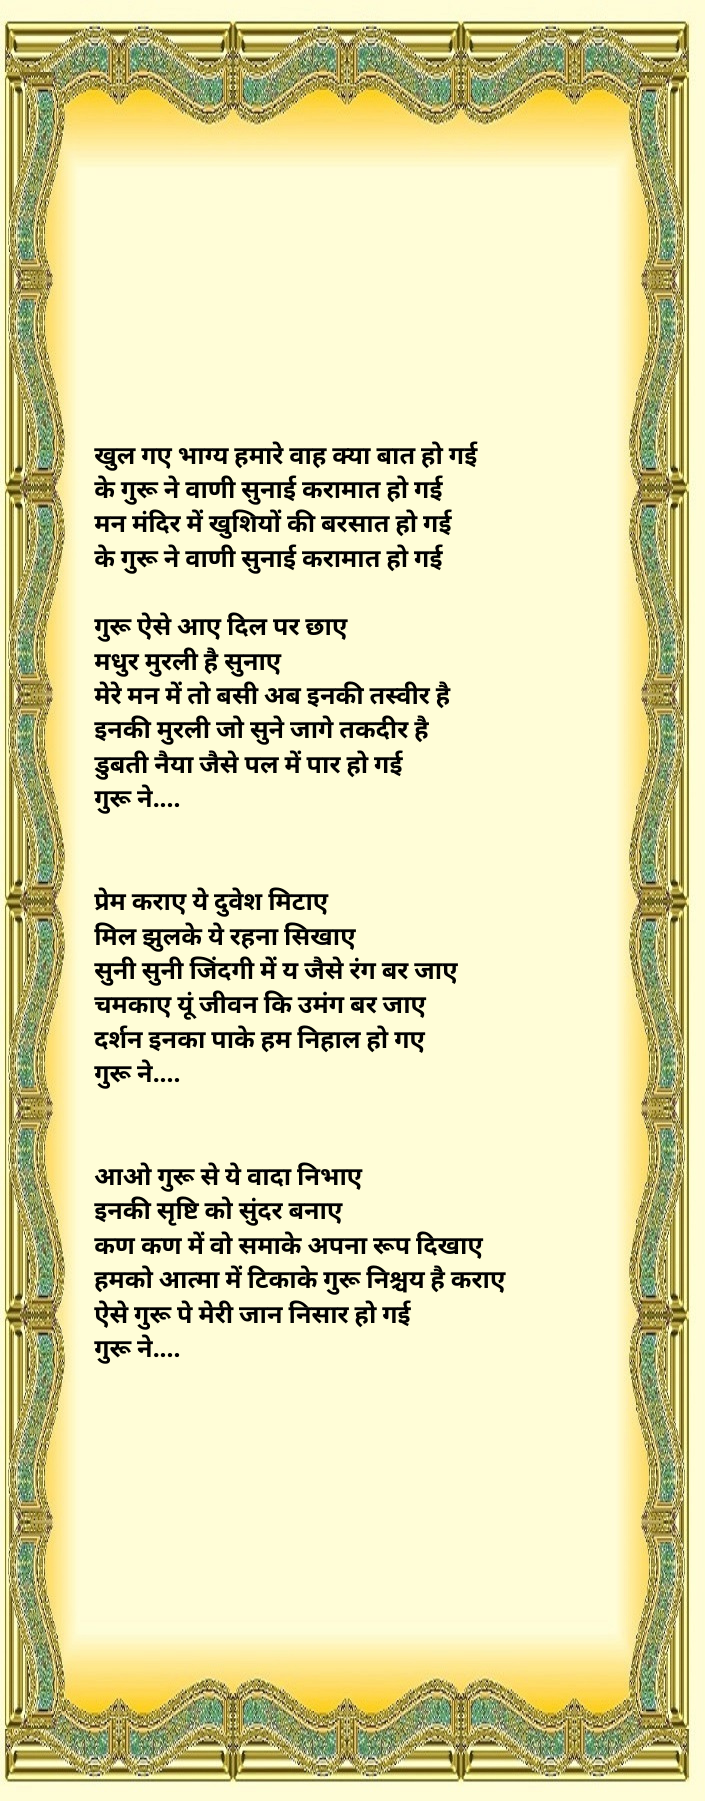 खुल गए भाग्य हमारे वाह क्या बात हो गई
के गुरू ने वाणी सुनाई करामात हो गई
मन मंदिर में खुशियों की बरसात हो गई
के गुरू ने वाणी सुनाई करामात हो गई

गुरू ऐसे आए दिल पर छाए
मधुर मुरली है सुनाए
मेरे मन में तो बसी अब इनकी तस्वीर है
इनकी मुरली जो सुने जागे तकदीर है
डुबती नैया जैसे पल में पार हो गई
गुरू ने....

प्रेम कराए ये दुवेश मिटाए
मिल झुलके ये रहना सिखाए
सुनी सुनी जिंदगी में य जैसे रंग बर जाए
चमकाए यूं जीवन कि उमंग बर जाए
दर्शन इनका पाके हम निहाल हो गए
गुरू ने....

आओ गुरू से ये वादा निभाए
इनकी सृष्टि को सुंदर बनाए
कण कण में वो समाके अपना रूप दिखाए
हमको आत्मा में टिकाके गुरू निश्चय है कराए
ऐसे गुरू पे मेरी जान निसार हो गई
गुरू ने....